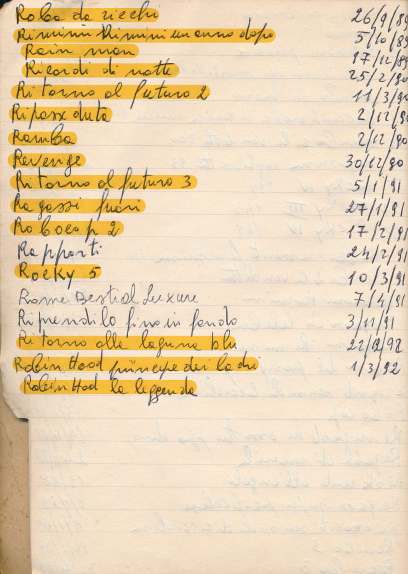 Roba da ricchi 26/9/89
Rimini Rimini un anno dopo 5/10/89
Rain man 17/12/89
Ricordi di notte 25/2/90
Ritorno al futuro 2 11/3/90
Riposseduta 2/12/90
Ramba 2/12/90
Revenge 30/12/90
Ritorno al futuro 3 5/1/91
Ragazzi fuori 27/1/91
Robocop 2 17/2/91
Rapporti 24/2/91
Rocky 5 10/3/91
Rose Bestial Luxure 7/4/91
Riprendilo fino in fondo 3/11/91
Ritorno alla laguna blu
Robin Hood principe dei ladri 1/3/92
Robin Hood la leggenda